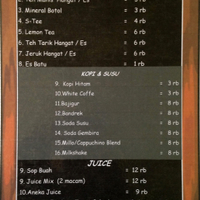 2. Teh Manis Hangat / Es
3. Mineral Botol = 3 rb
4. S-Tee = 4 rb
5. Lemon Tea = 6 rb
6. Teh Tarik Hangat / Es = 6 rb
7. Jeruk Hangat / Es = 6 rb
8. Es Batu = 1 rb
KOPI & SUSU
9. Kopi Hitam = 3 rb
10. White Coffe = 3 rb
11. Bajigur = 8 rb
12. Bandrek = 8 rb
13. Soda Susu = 8 rb
14. Soda Gembira = 8 rb
15. Milo/Cappuchino Blend = 8 rb
16. Milkshake = 8 rb
JUICE
9. Sop Buah = 12 rb
9. Juice Mix (2 macam) = 12 rb
10. Aneka Juice = 9 rb